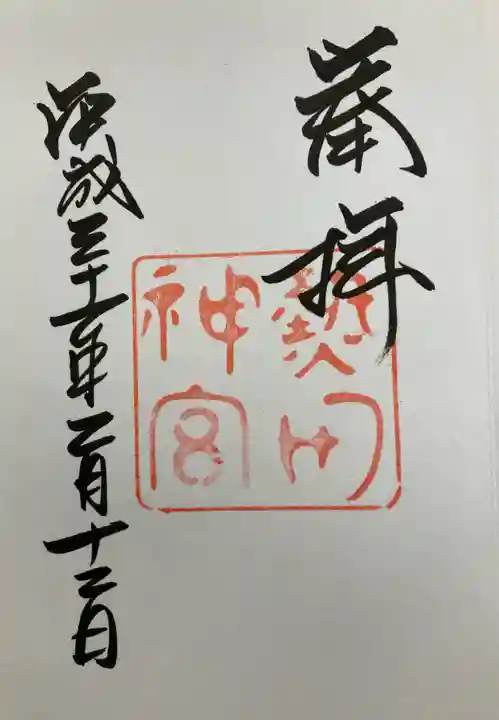 奉拝
熱田神宮
平成三十一年二月十二日